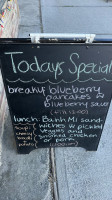 Todays Special
breaky: blueberry
pancakes &
blueberry sauce
lunch: Banh Mi sand-
wiches w pickled
veggies and
smoked chicken
or pork
soup
cheesy
potato